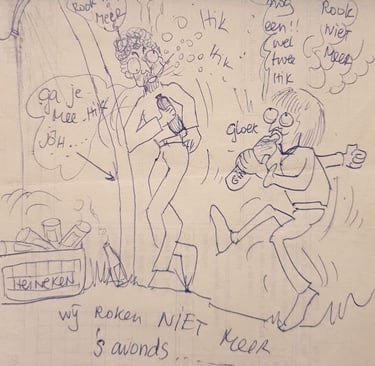 Rook
MEER
Hik
Hik
een!!
wel
twee
Hik
ROOK
NiET
MEER
ga je
MEE..Hik
gloek
Gin
HEINEKEN
wij ROKEN NIET MEER
's avonds...